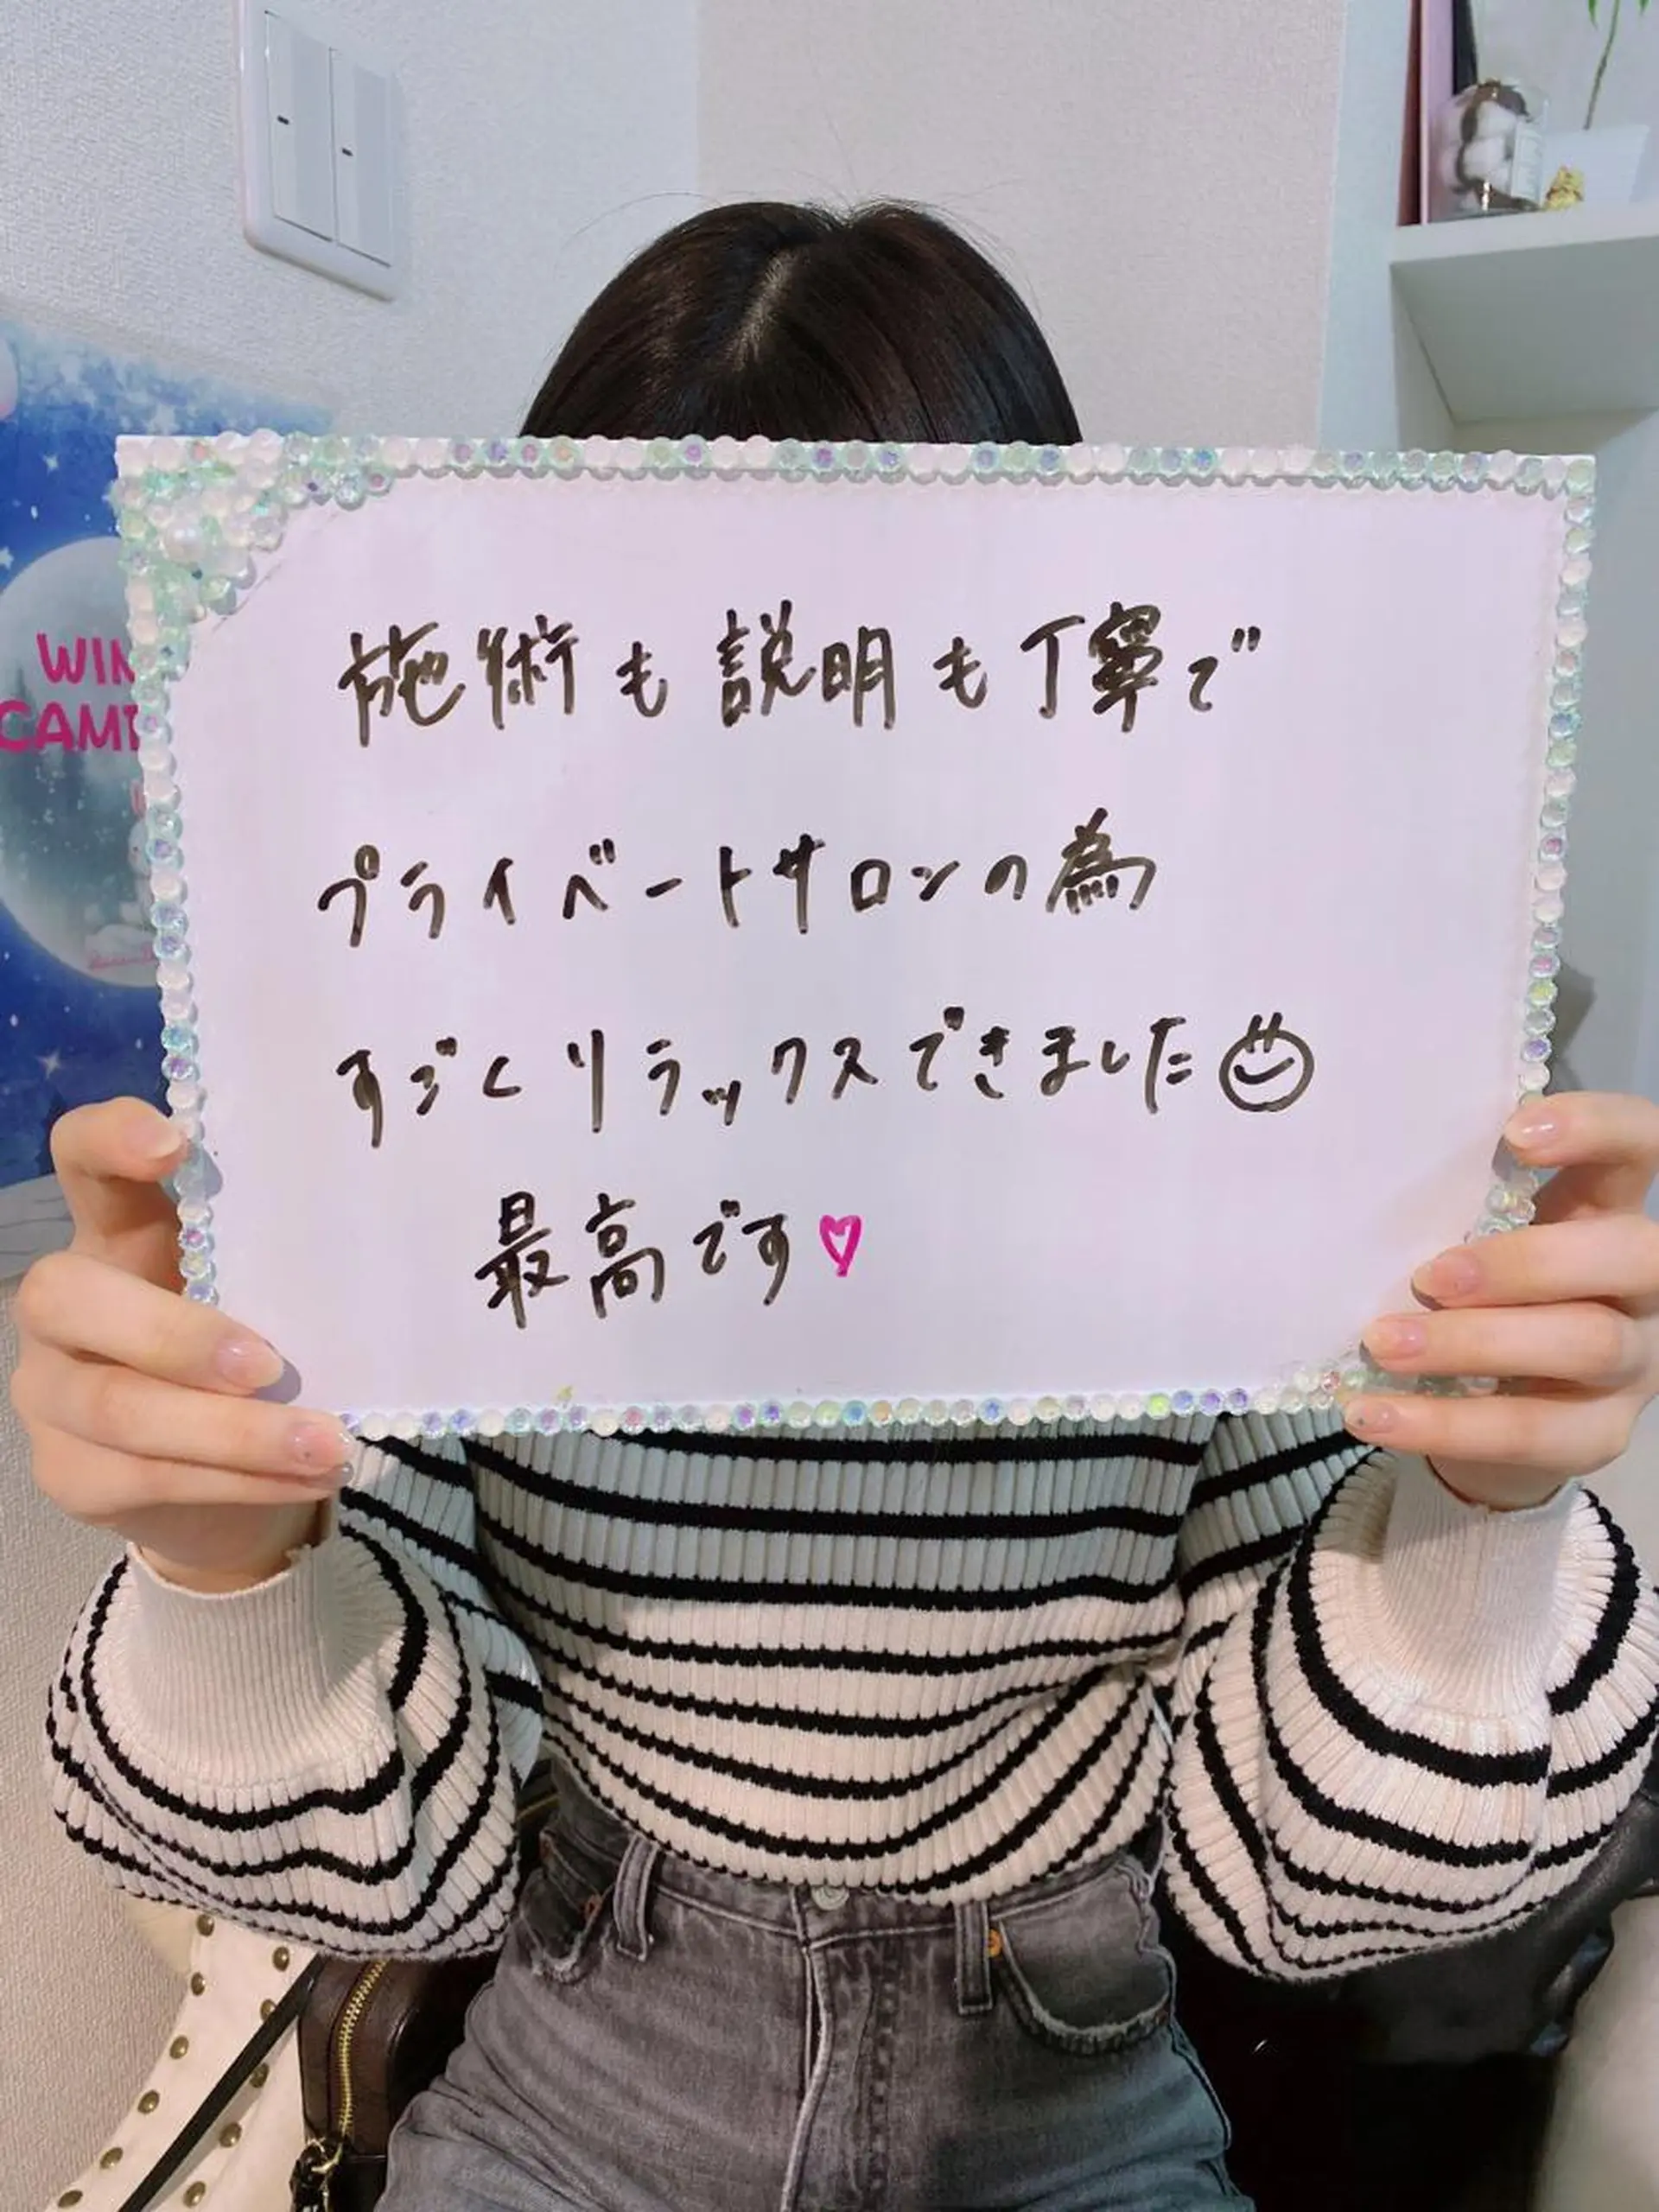 施術も説明も丁寧で
プライベートサロンの為
すごくリラックスできました
最高です♡
WIN
CAMP